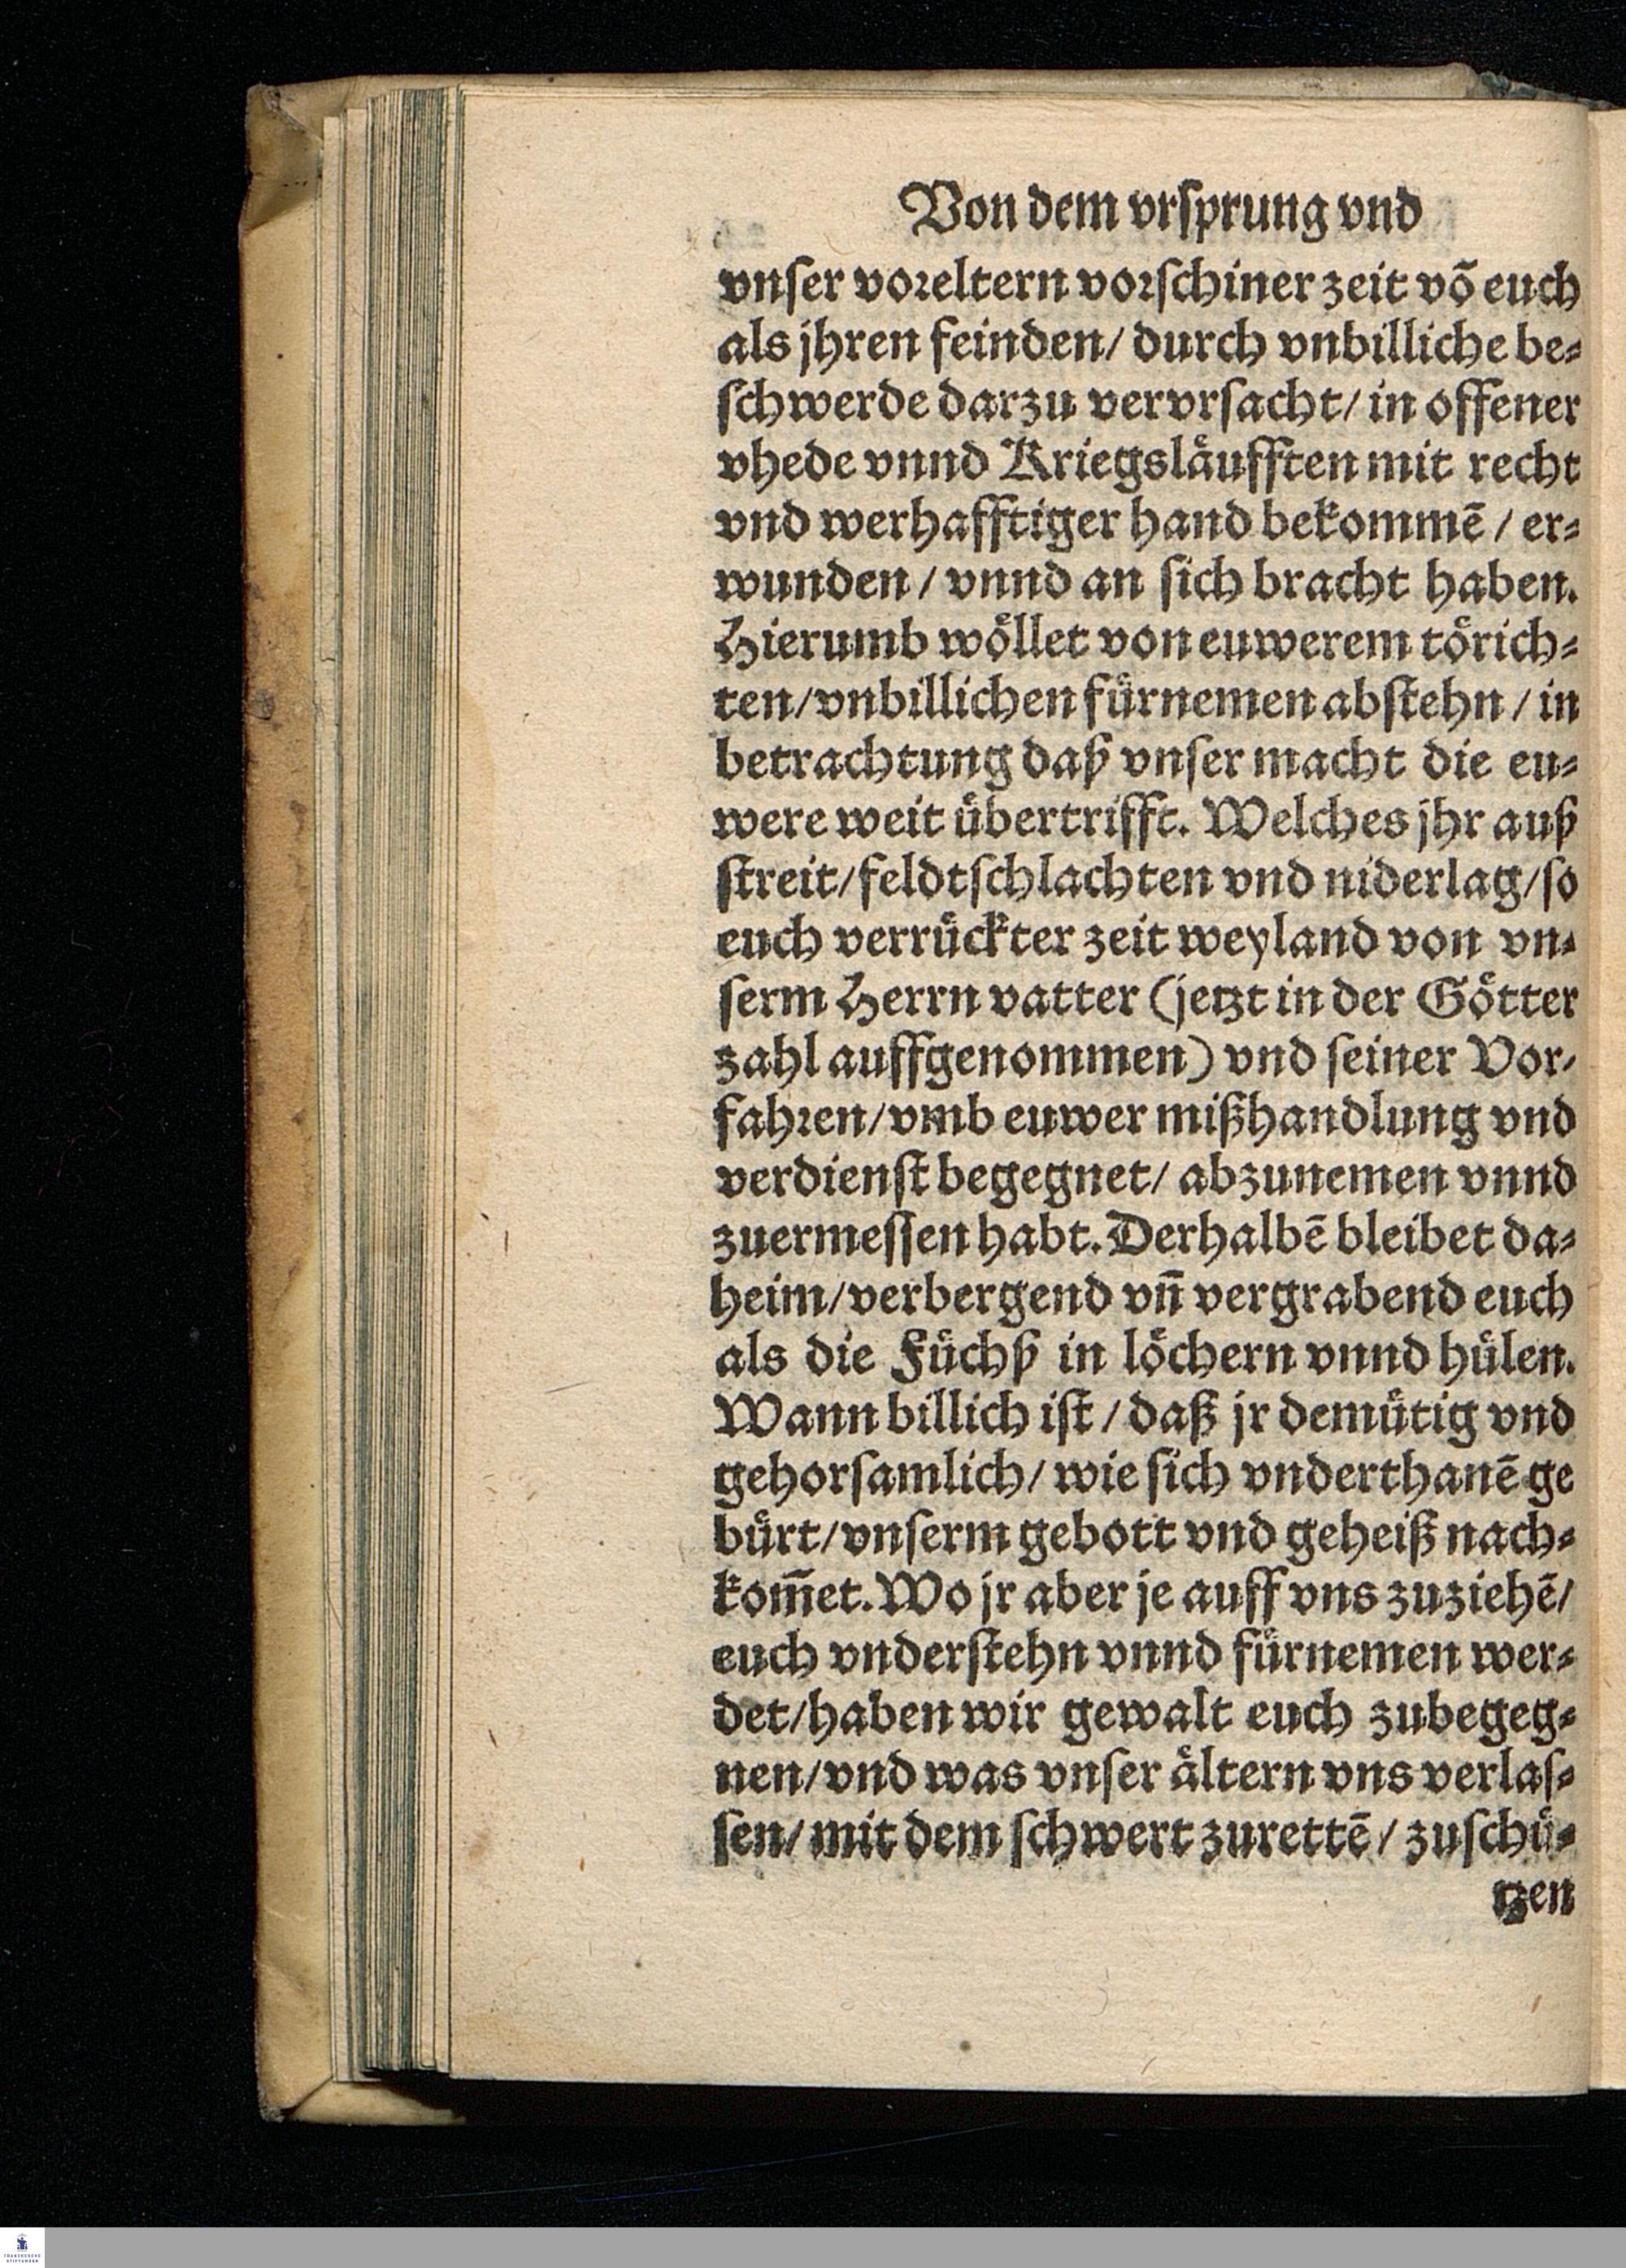 Von dem vrſprung vnd
vnſer voreltern vorſchiner zeit võ euch
als jhren feinden/ durch vnbilliche be⸗
ſchwerde darzu vervrſacht/ in offener
vhede vnnd Kriegsläufften mit recht
vnd werhafftiger hand bekommẽ / er⸗
wunden / vnnd an ſich bracht haben.
Hierumb wöllet von euwerem törich⸗
ten/ vnbillichen fürnemen abſtehn / in
betrachtung daß vnſer macht die eu⸗
were weit übertrifft. Welches jhr auß
ſtreit/ feldtſchlachten vnd niderlag/ ſo
euch verrückter zeit weyland von vn⸗
ſerm Herrn vatter (jetzt in der Götter
zahl auffgenommen) vnd ſeiner Vor⸗
fahren/ vmb euwer mißhandlung vnd
verdienſt begegnet/ abzunemen vnnd
zuermeſſen habt. Derhalbẽ bleibet da⸗
heim/ verbergend vñ vergrabend euch
als die Füchß in löchern vnnd hülen.
Wann billich iſt / daß jr demütig vnd
gehorſamlich/ wie ſich vnderthanẽ ge
bürt/ vnſerm gebott vnd geheiß nach⸗
kom̃et. Wo jr aber je auff vns zuziehẽ/
euch vnderſtehn vnnd fürnemen wer⸗
det/ haben wir gewalt euch zubegeg⸗
nen/ vnd was vnſer ältern vns verlaſ⸗
ſen/ mit dem ſchwert zurettẽ / zuſchü⸗
tzen